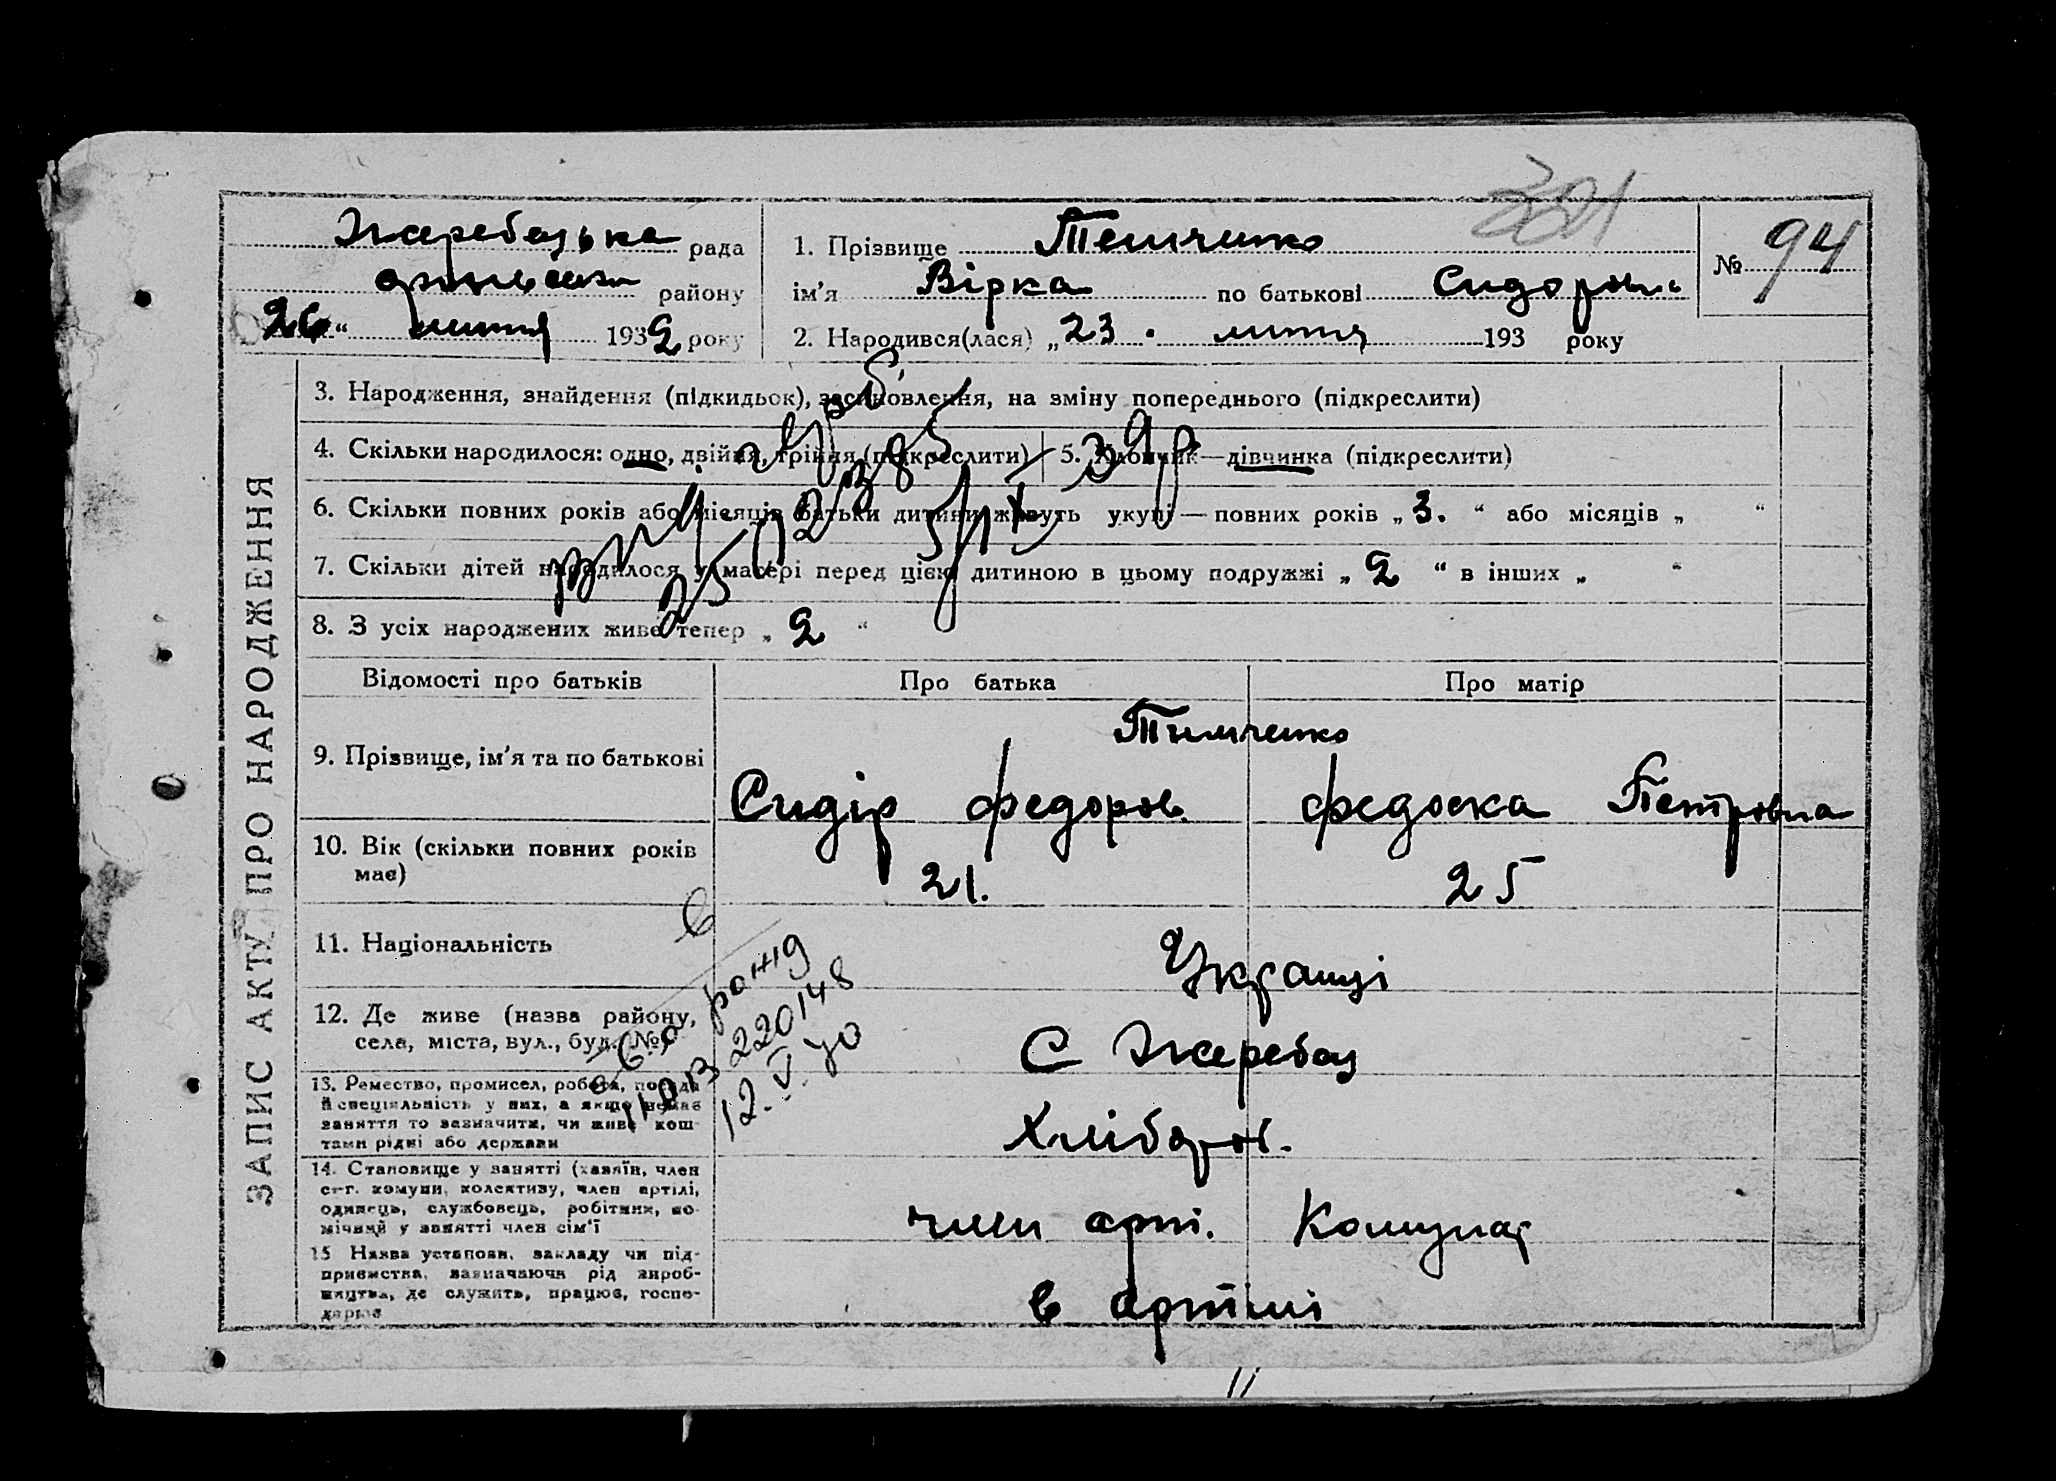 Жеребецька рада
району
"26" липня 1932 року
1. Прізвище Темченко
ім'я Вірка по батькові Сидоровна
2. Народився(лася) „23. липня 193 року
№ 94
301
ЗАПИС АКТУ ПРО НАРОДЖЕННЯ
3. Народження, знайдення (підкидьок), засиновлення, на зміну попереднього (підкреслити)
4. Скільки народилося: одно, двійня, трійня (підкреслити) 5. Хлопчик—дівчинка (підкреслити)
6. Скільки повних років або місяців батьки дитини живуть укупі — повних років „3." або місяців „ "
7. Скільки дітей народилося у матері перед цією дитиною в цьому подружжі „2" в інших „ "
8. З усіх народжених живе тепер „2"
Відомості про батьків Про батька Про матір
9. Прізвище, ім'я та по батькові
Тимченко
Сидір Федоров. Федоска Петровна
10. Вік (скільки повних років має)
21. 25
11. Національність
Українці
12. Де живе (назва району, села, міста, вул., буд. №)
С Жеребец
13. Ремество, промисел, робота, посада й спеціяльність у них, а якщо немає заняття то зазначити, чи живе коштами рідні або держави
Хлібороб.
14. Становище у занятті (хазяїн, член с.-г. комуни, колективу, член артілі, одинець, службовець, робітник, помічний у занятті член сім'ї
член арт.
15 Назва установи, закладу чи підприємства, зазначаючи рід виробництва, де служить, працює, господарює
в артілі
рожд
220148
12.V.40
11